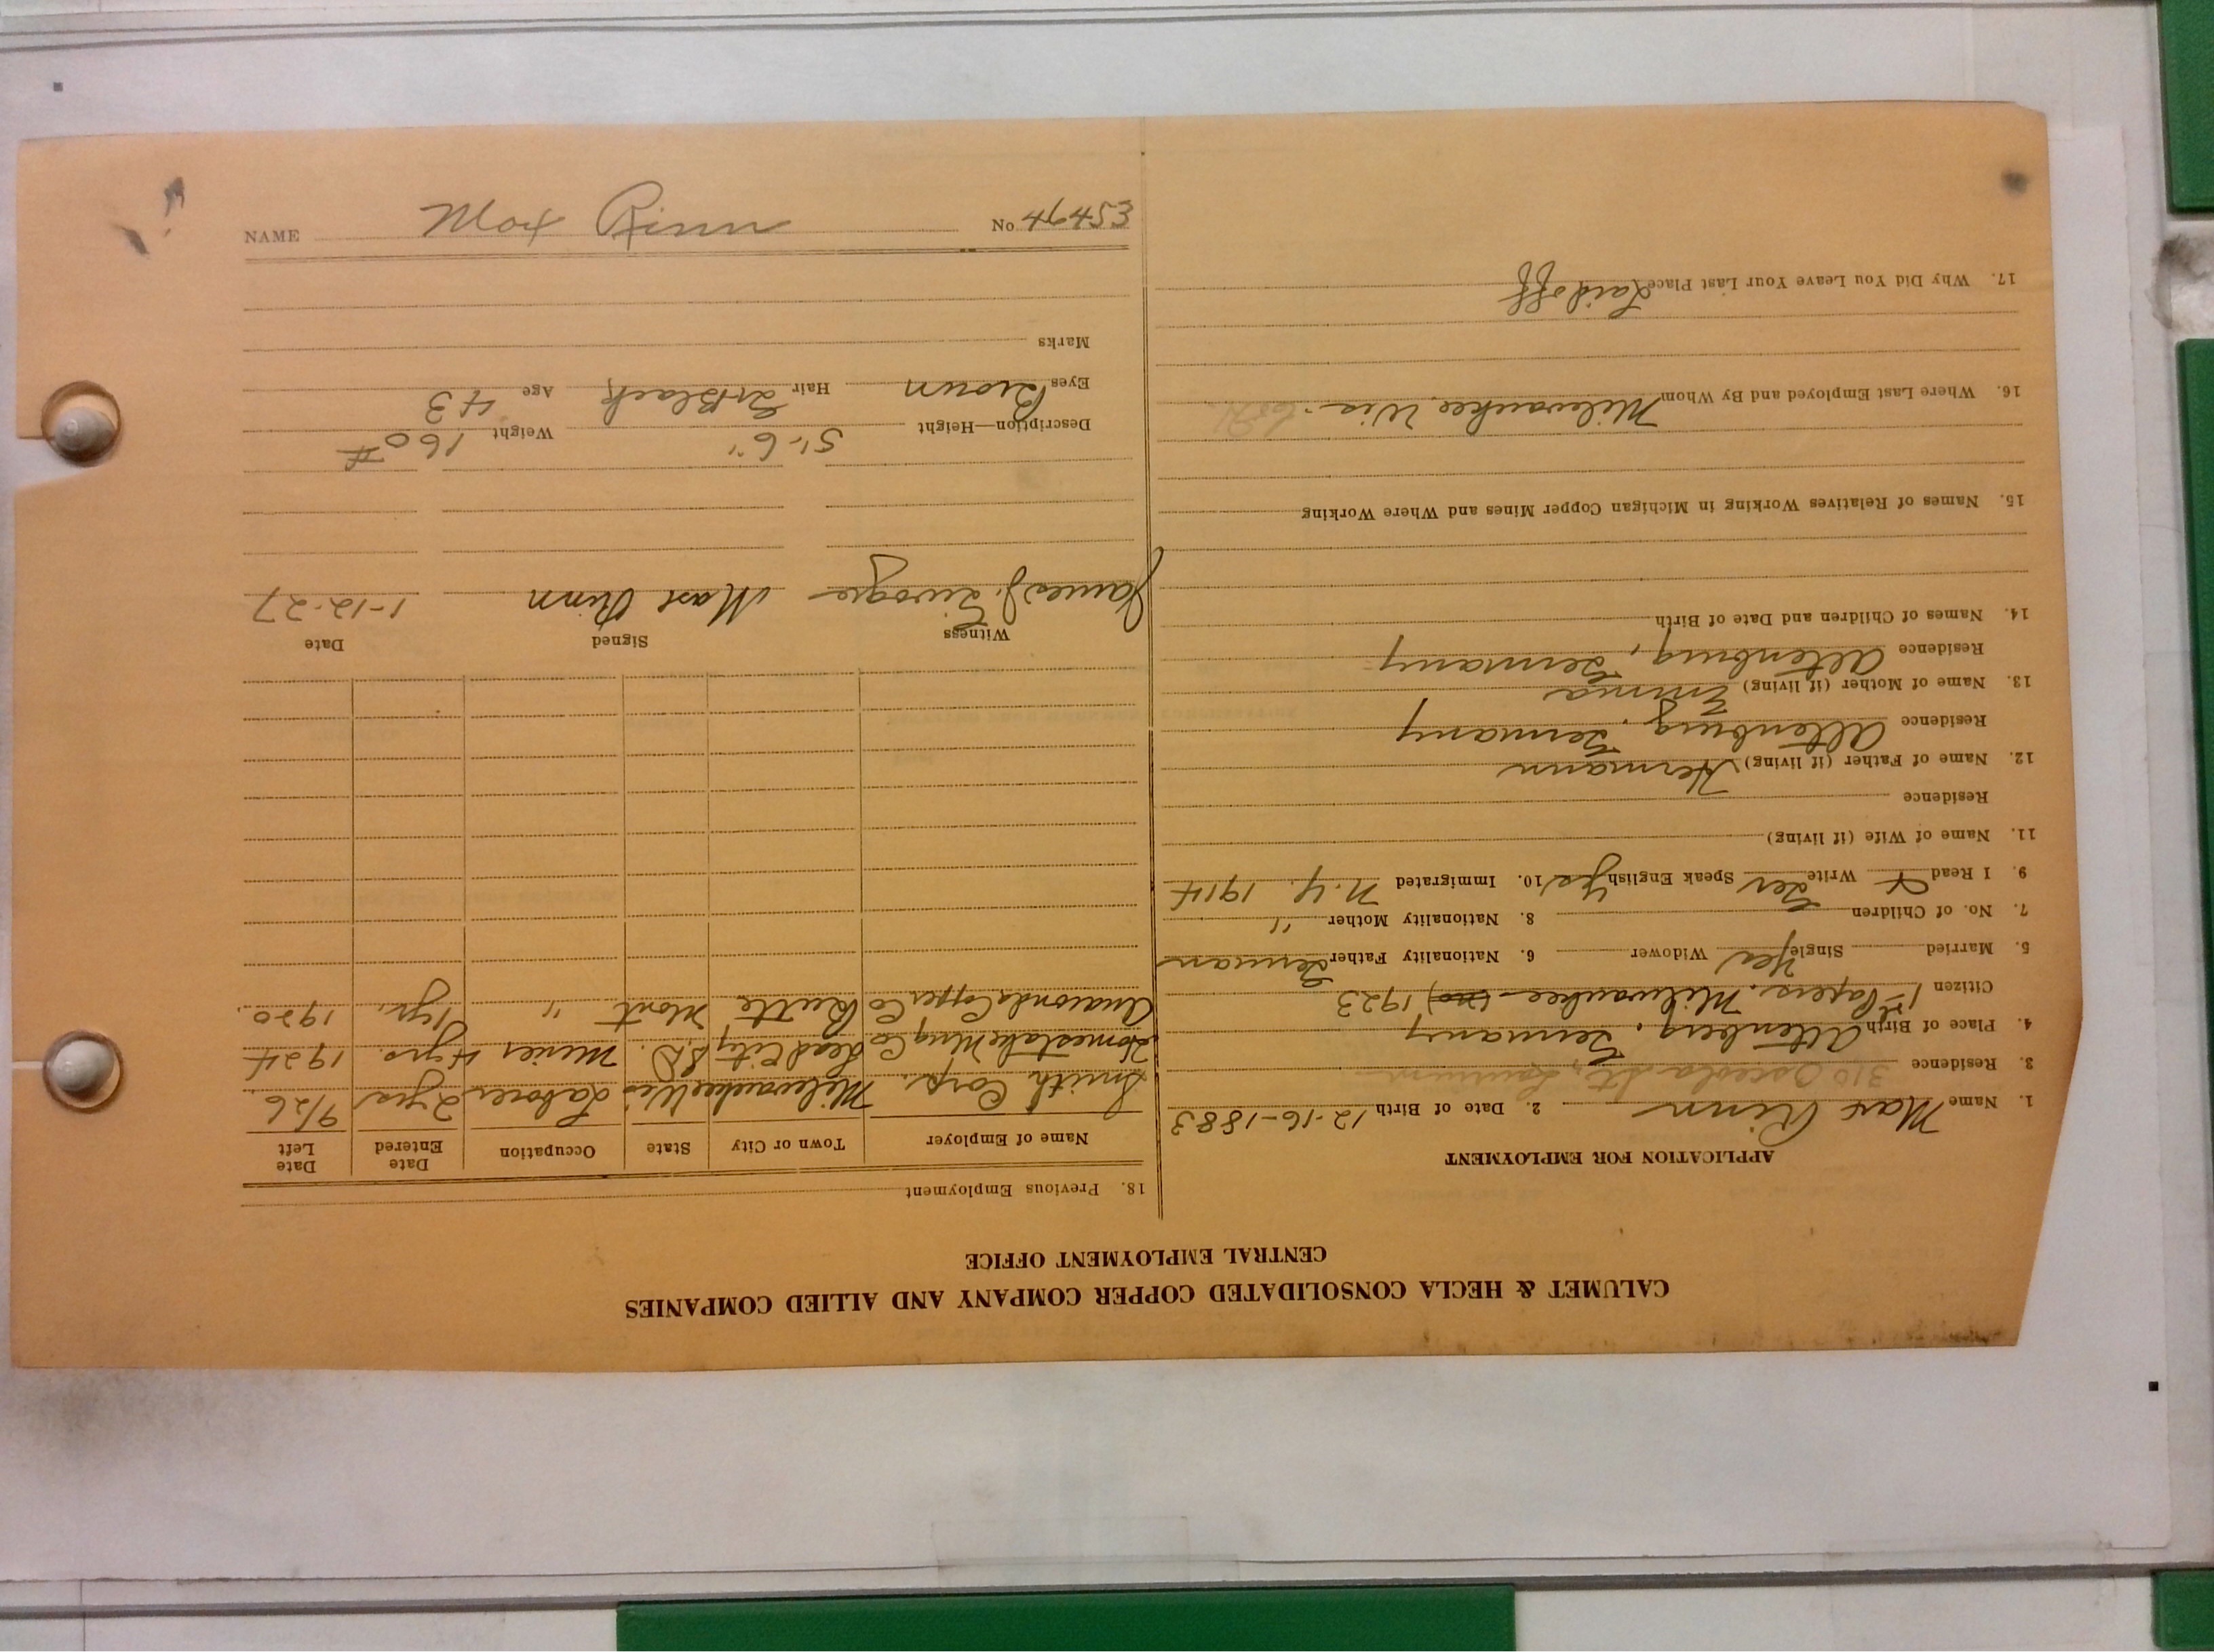 NAME Max Rinn No 46453
CALUMET & HECLA CONSOLIDATED COPPER COMPANY AND ALLIED COMPANIES
CENTRAL EMPLOYMENT OFFICE
APPLICATION FOR EMPLOYMENT
1. Name Max Rinn 2. Date of Birth 12-16-1883
3. Residence 310 Osceola St, Laurium
4. Place of Birth Altenburg, Germany
Citizen 1st Papers. Milwaukee 1923
5. Married Single Yes Widower 6. Nationality Father German
7. No. of Children 8. Nationality Mother "
9. I Read & Write Ger Speak English Yes 10. Immigrated N.Y. 1914
11. Name of Wife (if living)
Residence
12. Name of Father (if living) Hermann
Residence Altenburg, Germany
13. Name of Mother (if living) Emma
Residence Altenburg, Germany
14. Names of Children and Date of Birth
15. Names of Relatives Working in Michigan Copper Mines and Where Working
16. Where Last Employed and By Whom Milwaukee, Wis.
17. Why Did You Leave Your Last Place Laid off
18. Previous Employment
Name of Employer Town or City State Occupation Date Entered Date Left
Smith Corp. Milwaukee Wis Laborer 2 yrs 9/26
Homestake Mng Co Lead City S.D. Miner 4 yrs. 1924
Anaconda Copper Co Butte Mont " 7 yr. 1920.
Witness Signed Date
James J. Max Rinn 1-12-27
Description—Height 5'-6" Weight 160#
Eyes Brown Hair Black Age 43
Marks